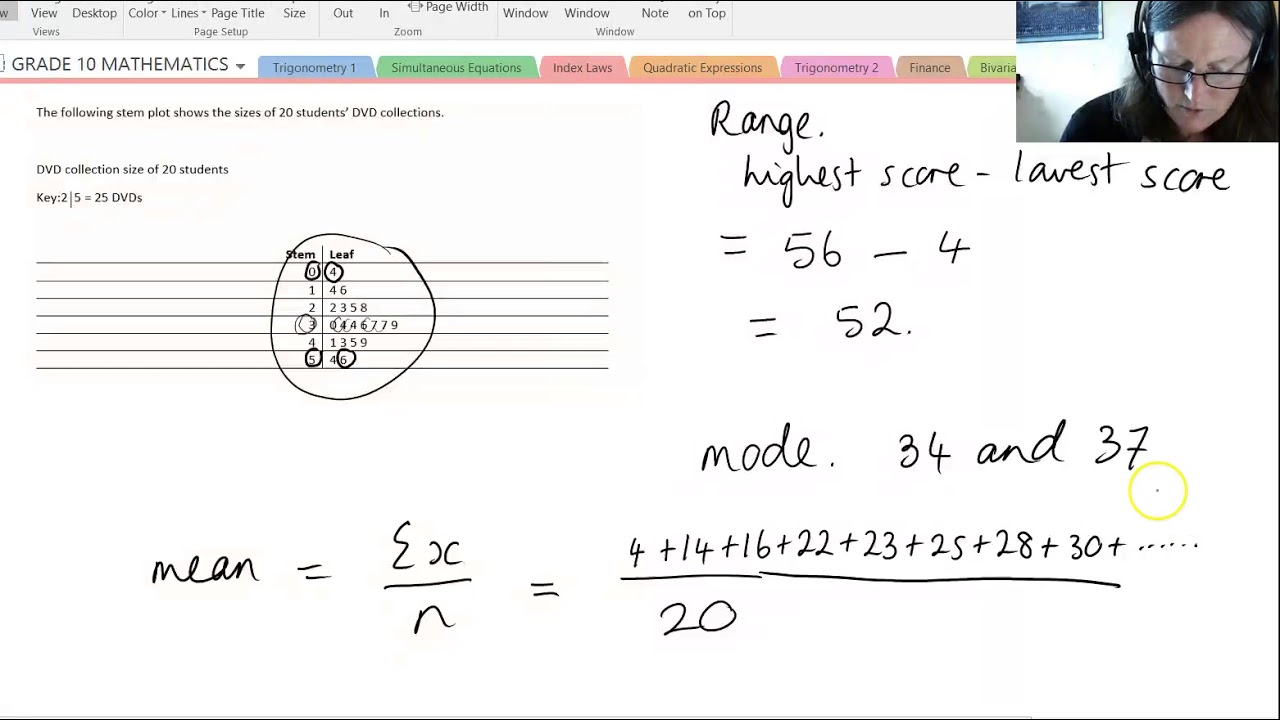 View Desktop Color Lines Page Title Size Out In Page Width Window Window Note on Top
Views Page Setup Zoom Window
GRADE 10 MATHEMATICS Trigonometry 1 Simultaneous Equations Index Laws Quadratic Expressions Trigonometry 2 Finance Bivaria
The following stem plot shows the sizes of 20 students' DVD collections.
DVD collection size of 20 students
Key:2|5 = 25 DVDs
Stem Leaf
0 4
1 4 6
2 2 3 5 8
3 0 4 4 6 7 7 9
4 1 3 5 9
5 4 6
Range.
highest score - lowest score
= 56 - 4
= 52.
mode. 34 and 37
mean = Σx = 4+14+16+22+23+25+28+30+......
n 20